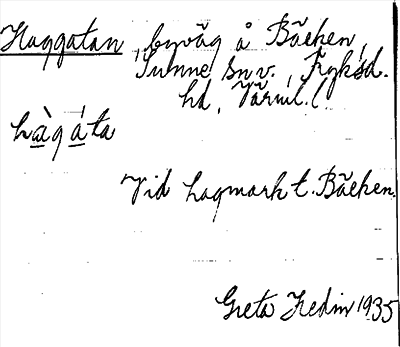 Haggatan, byväg å Bäcken,
Sunne sn v., Fryksd.
hd, Värml. l
hàgáta
Vid hagmark t. Bäcken.
Greta Hedin 1935